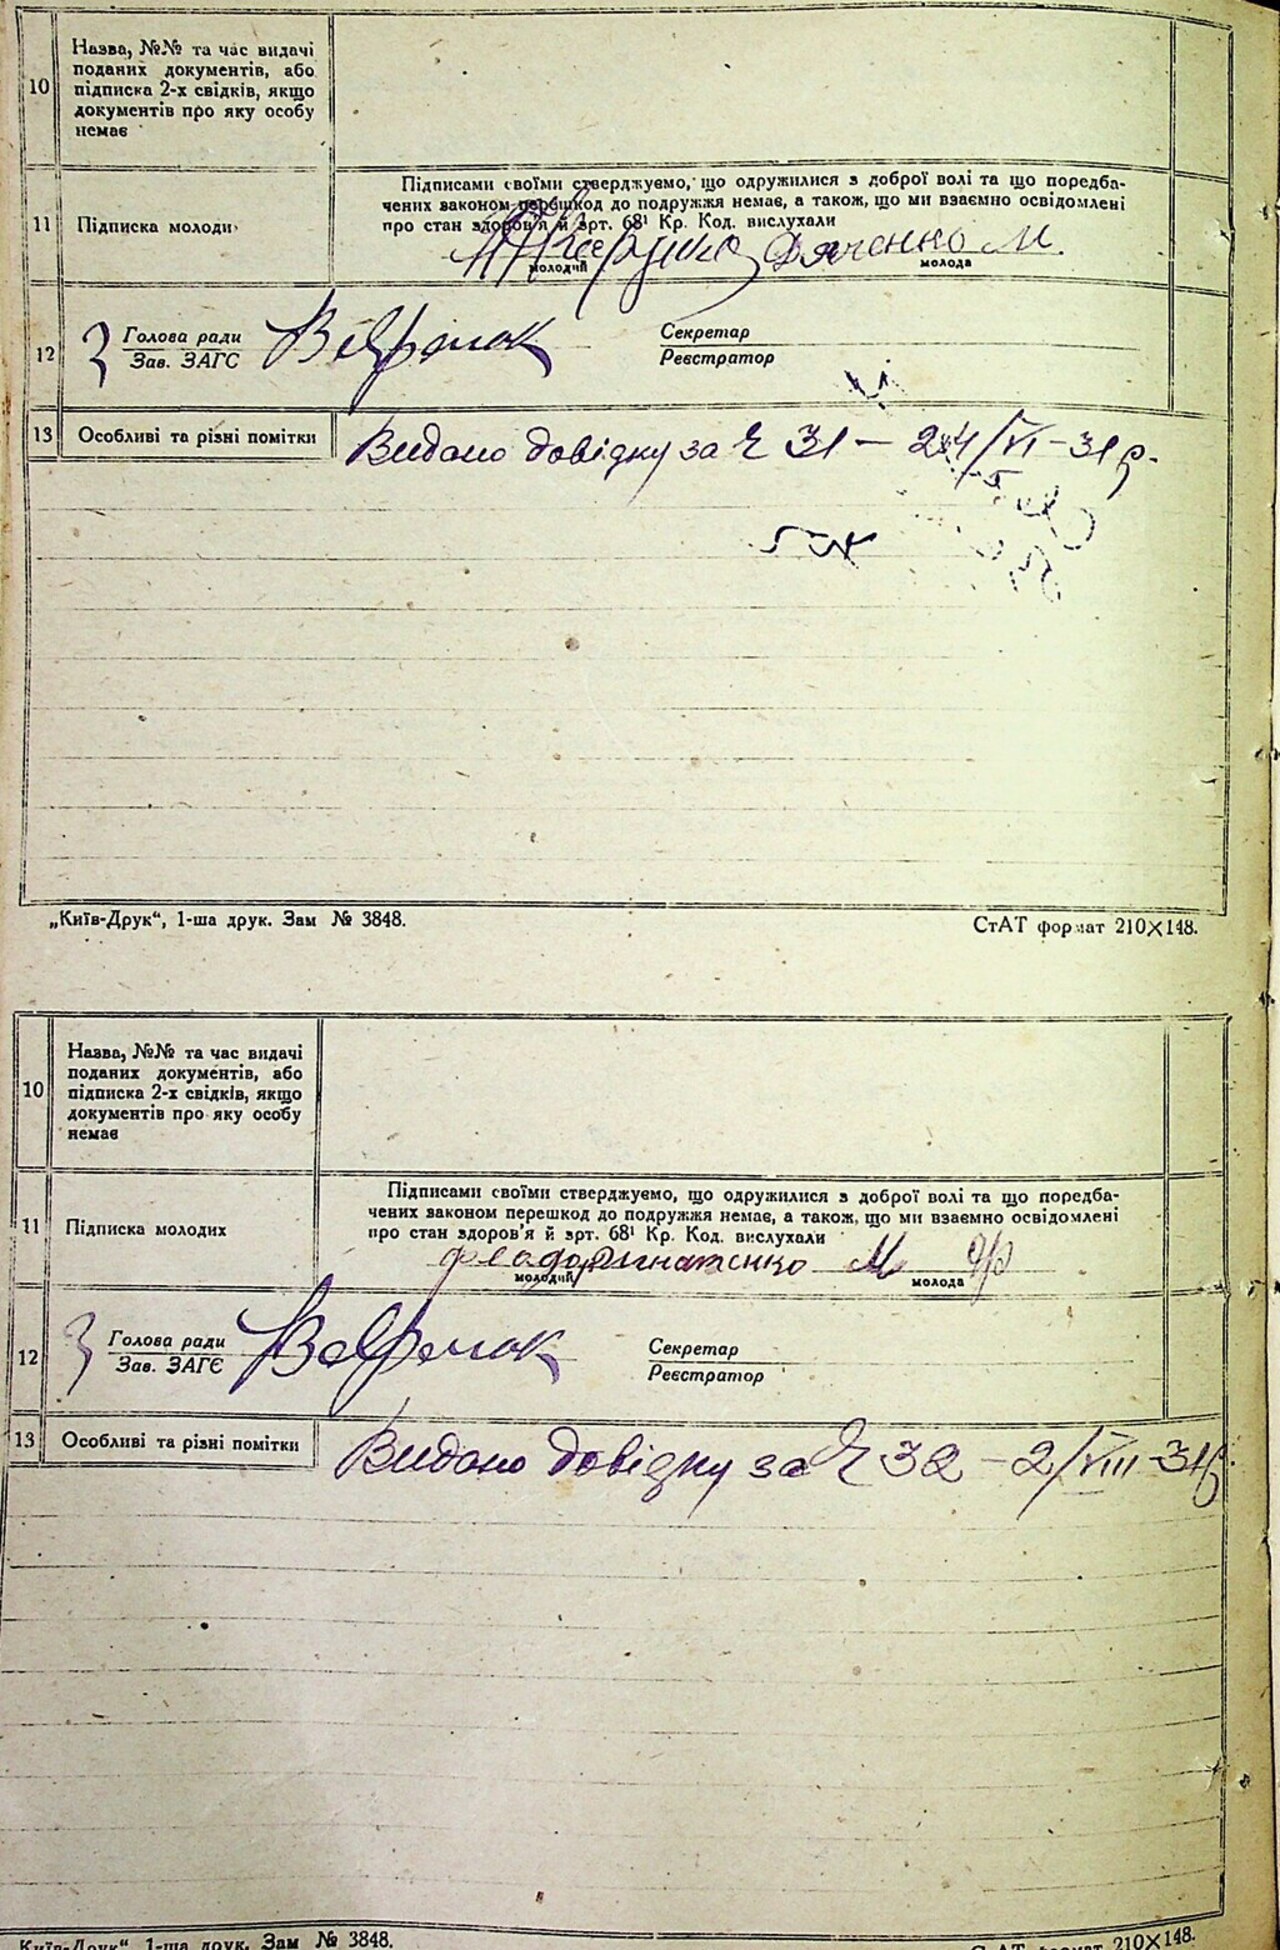 10
Назва, №№ та час видачі
поданих документів, або
підписка 2-х свідків, якщо
документів про яку особу
немає
Підписами своїми стверджуємо, що одружилися з доброї волі та що поредба-
чених законом перешкод до подружжя немає, а також, що ми взаємно освідомлені
про стан здоров'я й арт. 68¹ Кр. Код. вислухали
11 Підписка молоди
Дяченко М.
молодий молода
12
Голова ради
Зав. ЗАГС
Секретар
Реєстратор
13 Особливі та різні помітки
Видано довідку за Ч 31 — 24/VI - 31 р.
„Київ-Друк“, 1-ша друк. Зам № 3848.
СтАТ формат 210×148.
10
Назва, №№ та час видачі
поданих документів, або
підписка 2-х свідків, якщо
документів про яку особу
немає
Підписами своїми стверджуємо, що одружилися з доброї волі та що поредба-
чених законом перешкод до подружжя немає, а також, що ми взаємно освідомлені
про стан здоров'я й арт. 68¹ Кр. Код. вислухали
11 Підписка молодих
молодий молода
12
Голова ради
Зав. ЗАГС
Секретар
Реєстратор
13 Особливі та різні помітки
Видано довідку за Ч 32 — 2/VIII - 31 р.
Київ-Друк“ 1-ша друк. Зам № 3848.
СтАТ формат 210×148.